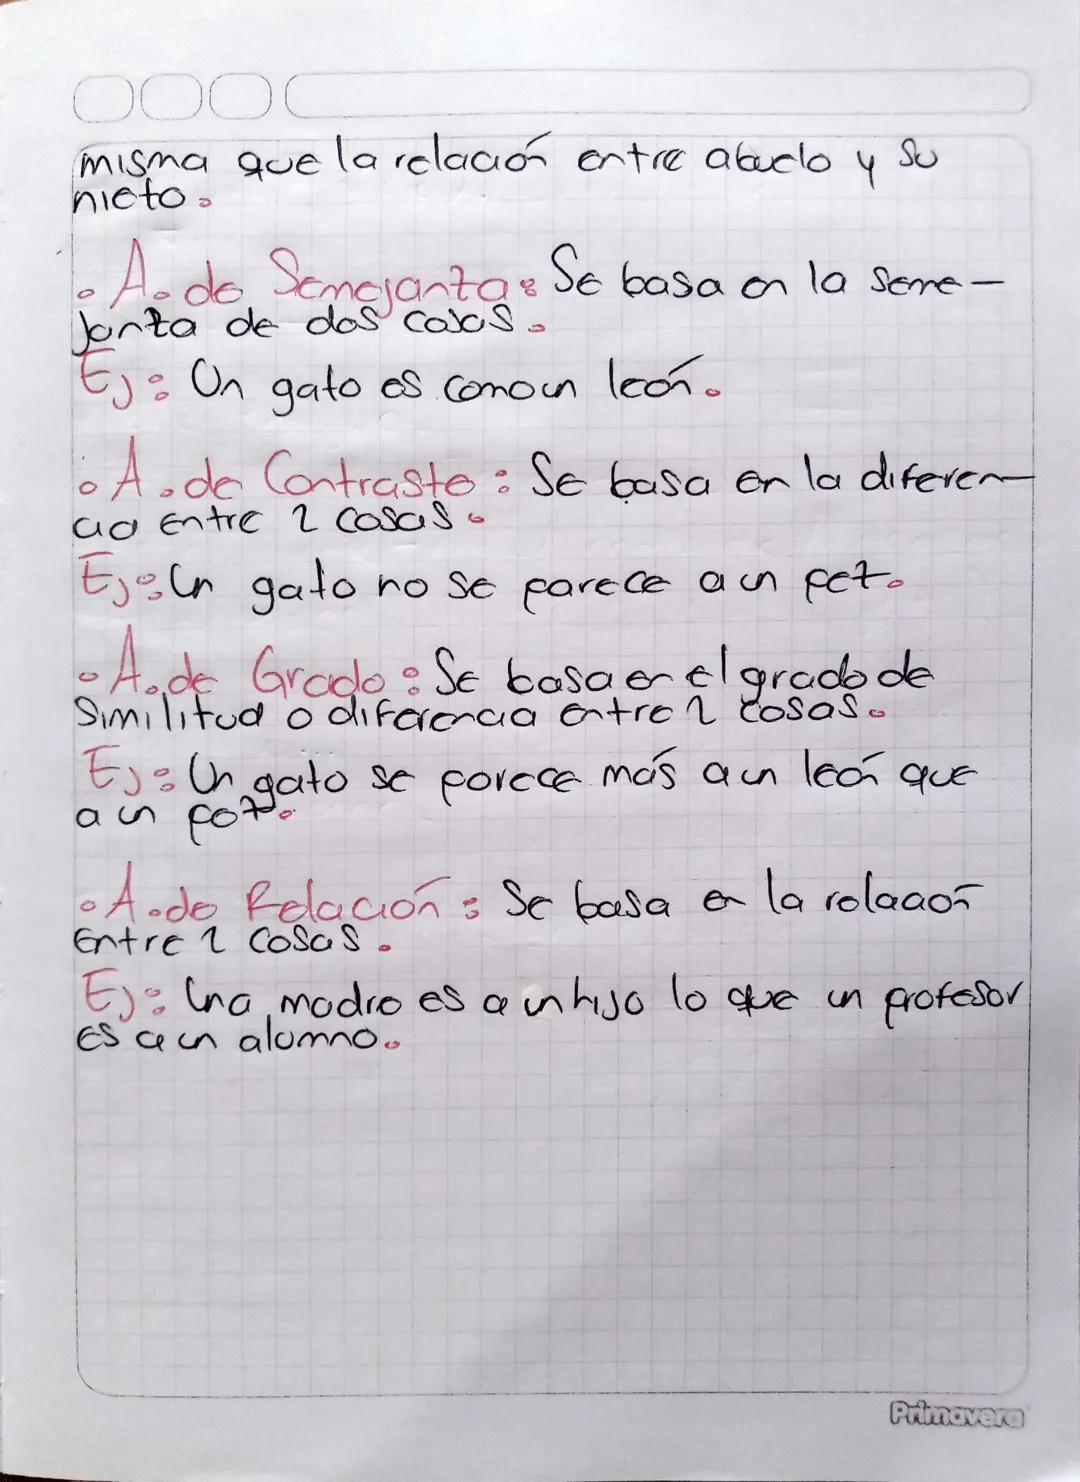 misma que la relación entre abuelo y su
nieto.
• A. de Semejanza: Se basa en la seme-
janza de dos cosas.
Ej: Un gato es como un león.
• A. de Contraste: Se basa en la diferen-
cia entre 2 cosas.
Ej: Un gato no se parece a un pez.
• A. de Grado: Se basa en el grado de
similitud o diferencia entre 2 cosas.
Ej: Un gato se parece más a un león que
a un pez.
• A. de Relación: Se basa en la relación
entre 2 cosas.
Ej: Una madre es a un hijo lo que un profesor
es a un alumno.
Primavera